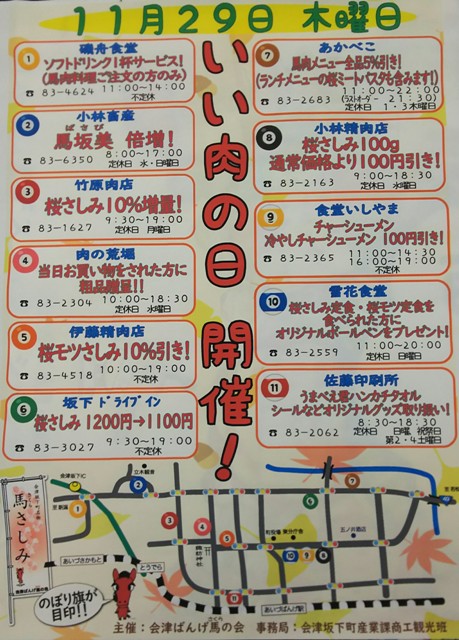 11月29日 木曜日
いい肉の日 開催！
1
磯舟食堂
ソフトドリンク1杯サービス！
（馬肉料理ご注文の方のみ）
☎ 83-4624 11:00～14:00
不定休
2
小林畜産
ばさび
馬坂美 倍増！
☎ 83-6350 8:00～17:00
定休日 水・日曜日
3
竹原肉店
桜さしみ10%増量！
9:30～19:00
☎ 83-1627 定休日 月曜日
4
肉の荒堀
当日お買い物をされた方に
粗品贈呈！！
☎ 83-2304 10:00～18:30
定休日 水曜日
5
伊藤精肉店
桜モツさしみ10%引き！
☎ 83-4518 10:00～19:00
不定休
6
坂下ドライブイン
桜さしみ 1200円→1100円
☎ 83-3027 9:30～19:00
不定休
7
あかべこ
馬肉メニュー全品5%引き！
（ランチメニューの桜ミートパスタも含みます！）
11:00～22:00
☎ 83-2683 (ラストオーダー 21:30)
定休日 1・3木曜日
8
小林精肉店
桜さしみ100g
通常価格より100円引き！
☎ 83-2163 9:00～18:30
定休日 水曜日
9
食堂いしやま
チャーシューメン
冷やしチャーシューメン 100円引き！
☎ 83-2365 11:00～14:30
16:00～19:00
不定休
10
雪花食堂
桜さしみ定食・桜モツ定食を
食べられた方に
オリジナルボールペンをプレゼント！
11:00～20:00
☎ 83-2559 定休日 日曜日
11
佐藤印刷所
うまべえ君ハンカチタオル
シールなどオリジナルグッズ取り扱い！
8:30～18:30
☎ 83-2062 定休日 日曜、祝祭日
第2・4土曜日
会津坂下IC
立木観音
至新潟
1
2
3
4
5
6
7
8
9
10
11
諏訪神社
五ノ井酒店
あいづさかもと
とうでら
あいづばんげ駅
馬さしみ
のぼり旗が
目印！！
主催：会津ばんげ馬の会 事務局：会津坂下町産業課商工観光班
さくら